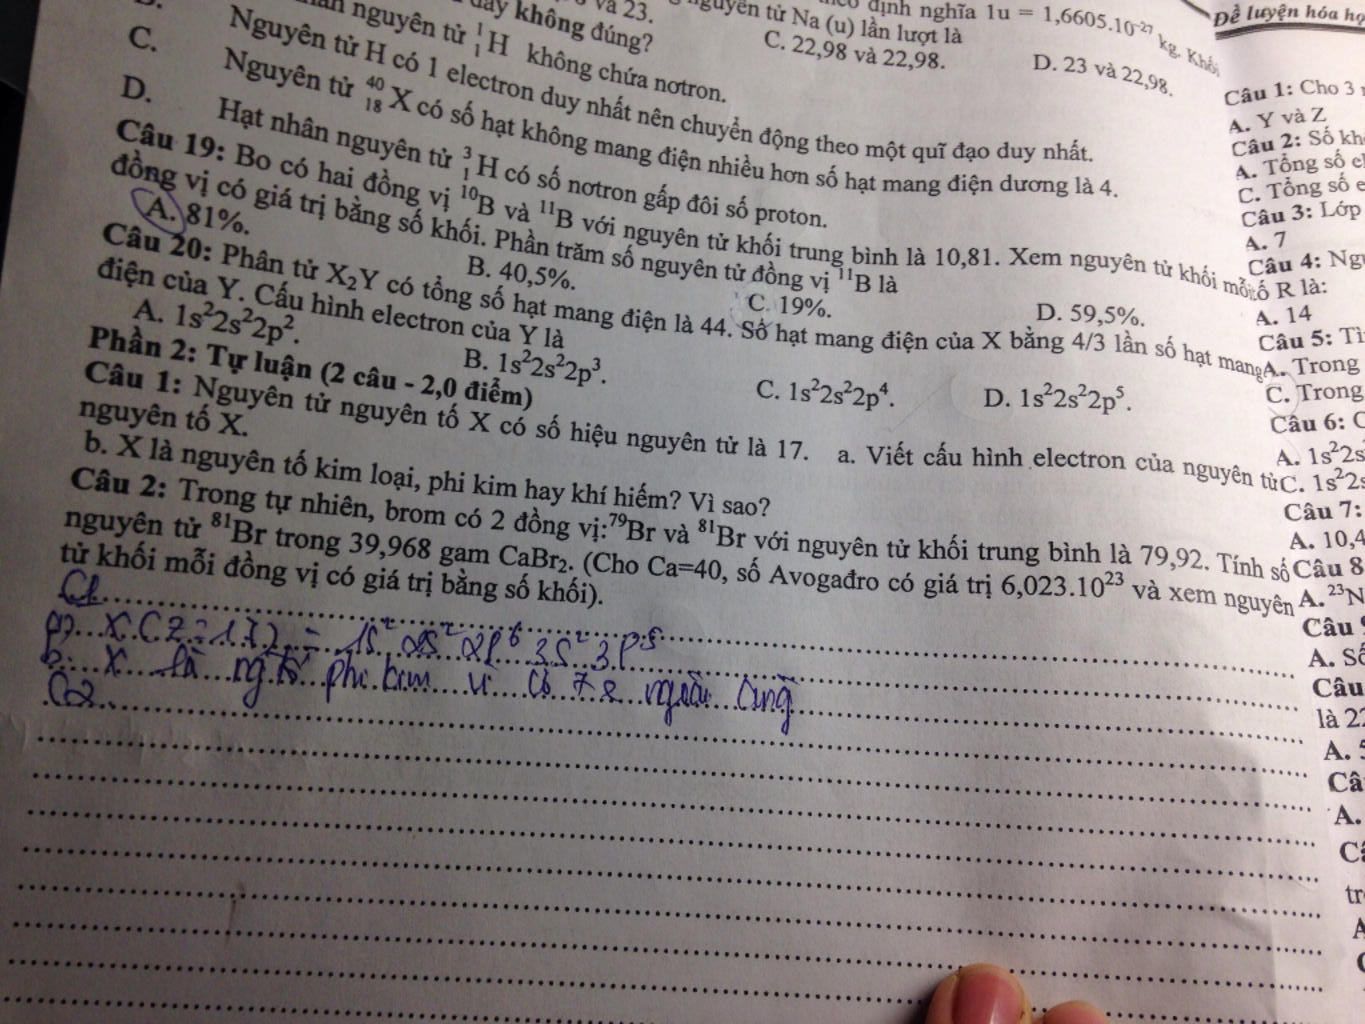 và 23.
định nghĩa 1u = 1,6605.10⁻²⁷ kg. Khối
nguyên tử Na (u) lần lượt là
C. 22,98 và 22,98.
D. 23 và 22,98.
đây không đúng?
nguyên tử ¹₁H không chứa nơtron.
C. Nguyên tử H có 1 electron duy nhất nên chuyển động theo một quĩ đạo duy nhất.
Nguyên tử ⁴⁰₁₈X có số hạt không mang điện nhiều hơn số hạt mang điện dương là 4.
D. Hạt nhân nguyên tử ³₁H có số nơtron gấp đôi số proton.
Câu 19: Bo có hai đồng vị ¹⁰B và ¹¹B với nguyên tử khối trung bình là 10,81. Xem nguyên tử khối mỗi
đồng vị có giá trị bằng số khối. Phần trăm số nguyên tử đồng vị ¹¹B là
A. 81%.
B. 40,5%.
C. 19%.
D. 59,5%.
Câu 20: Phân tử X₂Y có tổng số hạt mang điện là 44. Số hạt mang điện của X bằng 4/3 lần số hạt mang
điện của Y. Cấu hình electron của Y là
A. 1s²2s²2p².
B. 1s²2s²2p³.
C. 1s²2s²2p⁴.
D. 1s²2s²2p⁵.
Phần 2: Tự luận (2 câu - 2,0 điểm)
Câu 1: Nguyên tử nguyên tố X có số hiệu nguyên tử là 17. a. Viết cấu hình electron của nguyên tử
nguyên tố X.
b. X là nguyên tố kim loại, phi kim hay khí hiếm? Vì sao?
Câu 2: Trong tự nhiên, brom có 2 đồng vị:⁷⁹Br và ⁸¹Br với nguyên tử khối trung bình là 79,92. Tính số
nguyên tử ⁸¹Br trong 39,968 gam CaBr₂. (Cho Ca=40, số Avogađro có giá trị 6,023.10²³ và xem nguyên
tử khối mỗi đồng vị có giá trị bằng số khối).
C1
X (Z = 17) = 1s² 2s² 2p⁶ 3s² 3p⁵
b. X là ng tố phi kim vì có 7 e ngoài cùng
C2
Đề luyện hóa họ
Câu 1: Cho 3
A. Y và Z
Câu 2: Số kh
A. Tổng số e
C. Tổng số e
Câu 3: Lớp
A. 7
Câu 4: Ngu
tố R là:
A. 14
Câu 5: Tì
A. Trong
C. Trong
Câu 6: C
A. 1s²2s
C. 1s²2s
Câu 7:
A. 10,4
Câu 8
A. ²³N
Câu 9
A. Số
Câu
là 22
A. 5
Câ
A.
Câ
tr
A